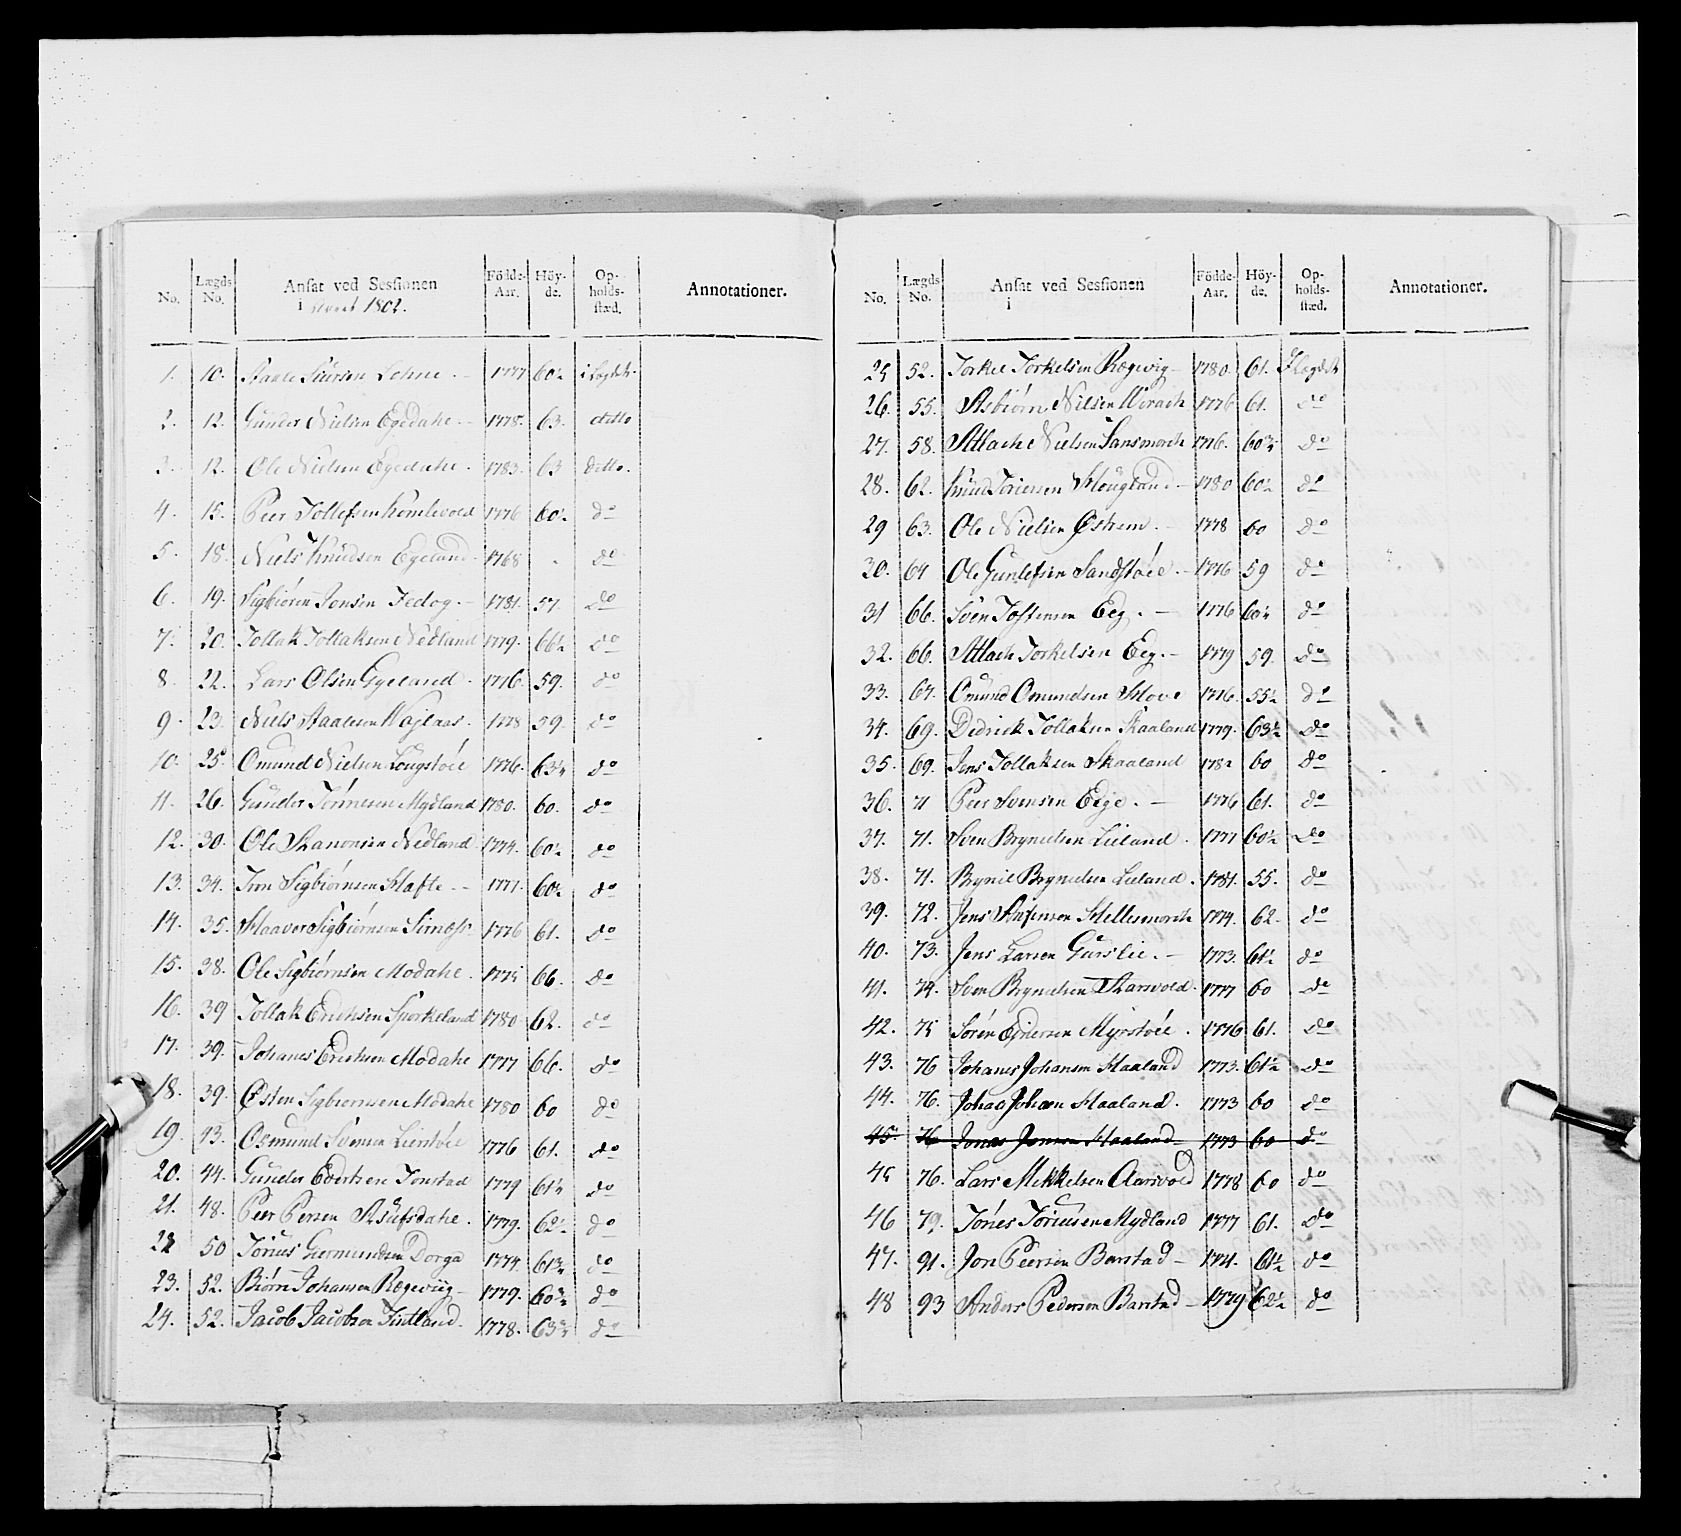 No. Lægds No. Ansat ved Sessionen i Aaret 1802. Födde-Aar. Höy-de. Op-holds-stæd. Annotationer.
1. 10. Staale Siursen Lohne. — 1777 60½ i Lægdet.
2. 12. Gunder Nielsen Egedahe. — 1778. 63. ditto
3. 12. Ole Nielsen Egedahe. 1783. 63 ditto.
4. 15. Peer Tollefsen Komlevold 1776 60½ do
5. 18. Niels Knudsen Egeland. 1768 . do
6. 19. Sigbiören Jonsen Fedog. — 1781. 57. do
7. 20. Tollak Tollaksen Nedland 1779. 66½ do
8. 22. Lars Olsen Gyeland. 1776. 59. do
9. 23. Niels Staalesen 1778 59. do
10. 25. Omund Nielsen Longstöel 1776. 63¼ do
11. 26. Gunder Tönnesen Mydland 1780. 60. do
12. 30. Ole Nedland 1774. 60½ do
13. 34. Sigbiörnsen Hafte. — 1777. 60½ do
14. 35. Sigbiörnsen Sirnæs 1776 61. do
15. 38. Ole Sigbiörnsen Modahe. 1775 66. do
16. 39 Tollak Erichsen Sporkeland 1780 62. do
17. 39. Johanes Erichsen Modahe 1777 66. do
18. 39. Østen Sigbiörnsen Modahe 1780 60 do
19. 43. Osmund Svensen Lienstöel 1776 61. do
20. 44. Gunder Evertsen Tonstad 1779 61½ do
21. 48. Peer Persen 1779. 62½ do
22 50 Tönnes Germundsen Dorga 1774 61¾ do
23. 52. Biörn Johansen Rægeviig — 1779. 60¾ do
24. 52. Jacob Jacobsen 1778. 63¾ do
No. Lægds No. Ansat ved Sessionen i Födde-Aar. Höy-de. Op-holds-stæd. Annotationer.
25 52. Torkel Torkelsen Rægevig — 1780. 61. I Lægdet
26. 55. Asbiörn Nielsen 1776 61. do
27. 58. Atlach Nielsen Sansmorck 1776. 60¾ do
28. 62. Knud 1780 60½ do
29 63. Ole Nielsen Östrem. — 1778 60 do
30. 64 Ole Gunlefsen Sandstöel. — 1776 59 do
31 66. Sven Tostensen Eeg. — 1776 60½ do
32. 66. Atlach Torkelsen Eeg. — 1779 59. do
33. 67. Omund Omundsen 1776. 55½ do
34. 69. Didrick Tollaksen Skaaland 1779. 63½ do
35. 69. Jens Tollaksen Skaaland 1782 60 do
36. 71 Peer Svensen Eege. — 1776 61. do
37. 71. Sven Brynelsen Liland. 1777 60½ do
38. 71. Brynil Brynelsen Liland. 1781. 55. do
39. 72. Jens 1774. 62. do
40. 73. Jens Larsen Gurslie. — 1773. 61½ do
41. 74. Sven Brynelsen 1777 60 do
42. 75 Sören Ejnersen Myrstöel. 1776 61. do
43. 76 Johanes Johansen Haaland 1773. 61½ do
44. 76. Haaland. 1773 60 do
45. 76 Jonas Jonsen Haaland — 1773 60 do
45 76. Lars Mikkelsen Aarsvold 1778 60 do
46 79. Tönes Mydland 1777 61. do
47. 91. Jon Peersen Barstad — 1774. 61½ do
48 93 Anders Pedersen Barstad — 1779 62½ do